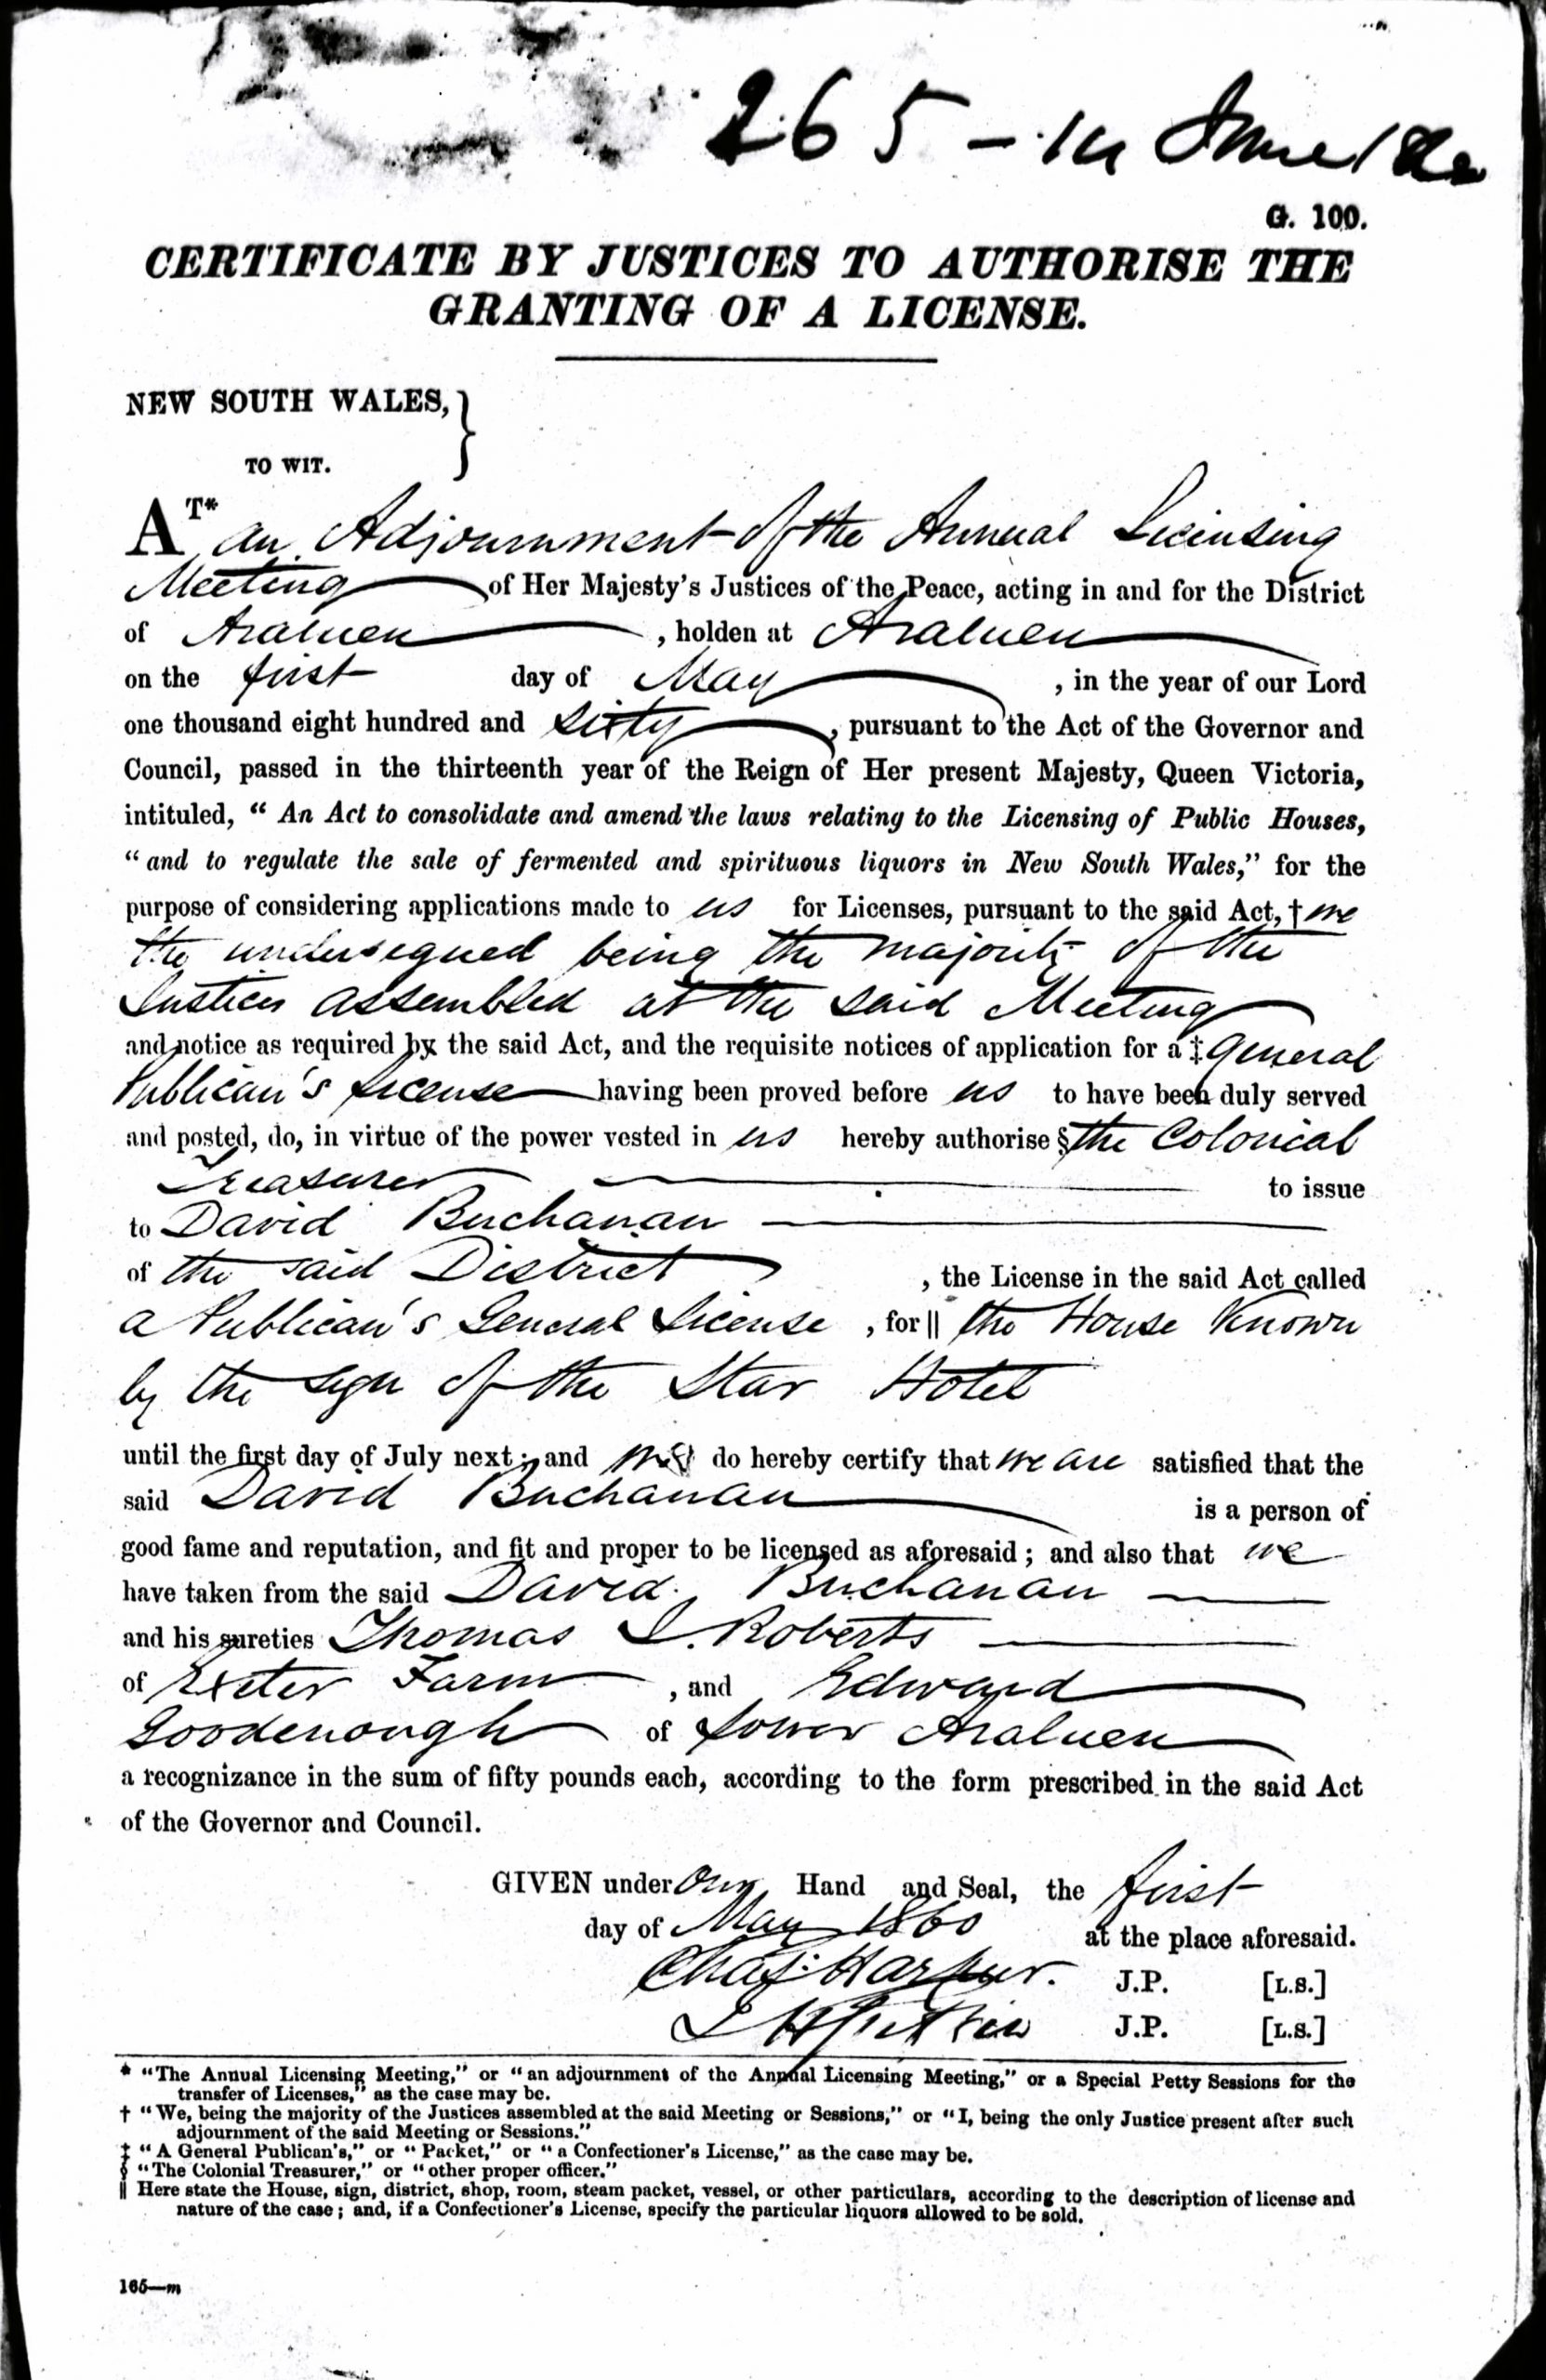 265 - 14 June 1860
G. 100.
CERTIFICATE BY JUSTICES TO AUTHORISE THE
GRANTING OF A LICENSE.
NEW SOUTH WALES, }
TO WIT.
AT* an Adjournment of the Annual Licensing
Meeting of Her Majesty's Justices of the Peace, acting in and for the District
of Araluen, holden at Araluen
on the first day of May, in the year of our Lord
one thousand eight hundred and sixty, pursuant to the Act of the Governor and
Council, passed in the thirteenth year of the Reign of Her present Majesty, Queen Victoria,
intituled, “ An Act to consolidate and amend the laws relating to the Licensing of Public Houses,
“ and to regulate the sale of fermented and spirituous liquors in New South Wales,” for the
purpose of considering applications made to us for Licenses, pursuant to the said Act, † we
the undersigned being the majority of the
Justices assembled at the said Meeting
and notice as required by the said Act, and the requisite notices of application for a ‡ General
Publican's License having been proved before us to have been duly served
and posted, do, in virtue of the power vested in us hereby authorise § the Colonial
Treasurer to issue
to David Buchanan
of the said District, the License in the said Act called
a Publican's General License, for || the House Known
by the sign of the Star Hotel
until the first day of July next; and we do hereby certify that we are satisfied that the
said David Buchanan is a person of
good fame and reputation, and fit and proper to be licensed as aforesaid; and also that we
have taken from the said David Buchanan
and his sureties Thomas J. Roberts
of Exeter Farm, and Edward
Goodenough of Lower Araluen
a recognizance in the sum of fifty pounds each, according to the form prescribed in the said Act
of the Governor and Council.
GIVEN under Our Hand and Seal, the first
day of May 1860 at the place aforesaid.
Chas: Harpur. J.P. [L.S.]
J.P. [L.S.]
* “The Annual Licensing Meeting,” or “an adjournment of the Annual Licensing Meeting,” or a Special Petty Sessions for the
transfer of Licenses,” as the case may be.
† “We, being the majority of the Justices assembled at the said Meeting or Sessions,” or “I, being the only Justice present after such
adjournment of the said Meeting or Sessions.”
‡ “A General Publican's,” or “Packet,” or “a Confectioner's License,” as the case may be.
§ “The Colonial Treasurer,” or “other proper officer.”
|| Here state the House, sign, district, shop, room, steam packet, vessel, or other particulars, according to the description of license and
nature of the case; and, if a Confectioner's License, specify the particular liquors allowed to be sold.
165—m